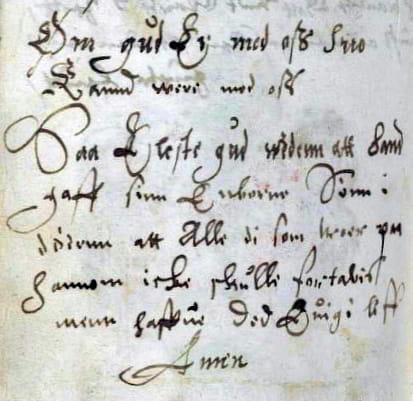 Om gud Er med oss huo
kannd were mod oss
Saa Elskte gud werdenn att hand
gaff sinn Enborne Sønn i
dødenn att Alle di som troer paa
hannom icke skulle fortabis
menn haffue Ded Euige liff
Amen